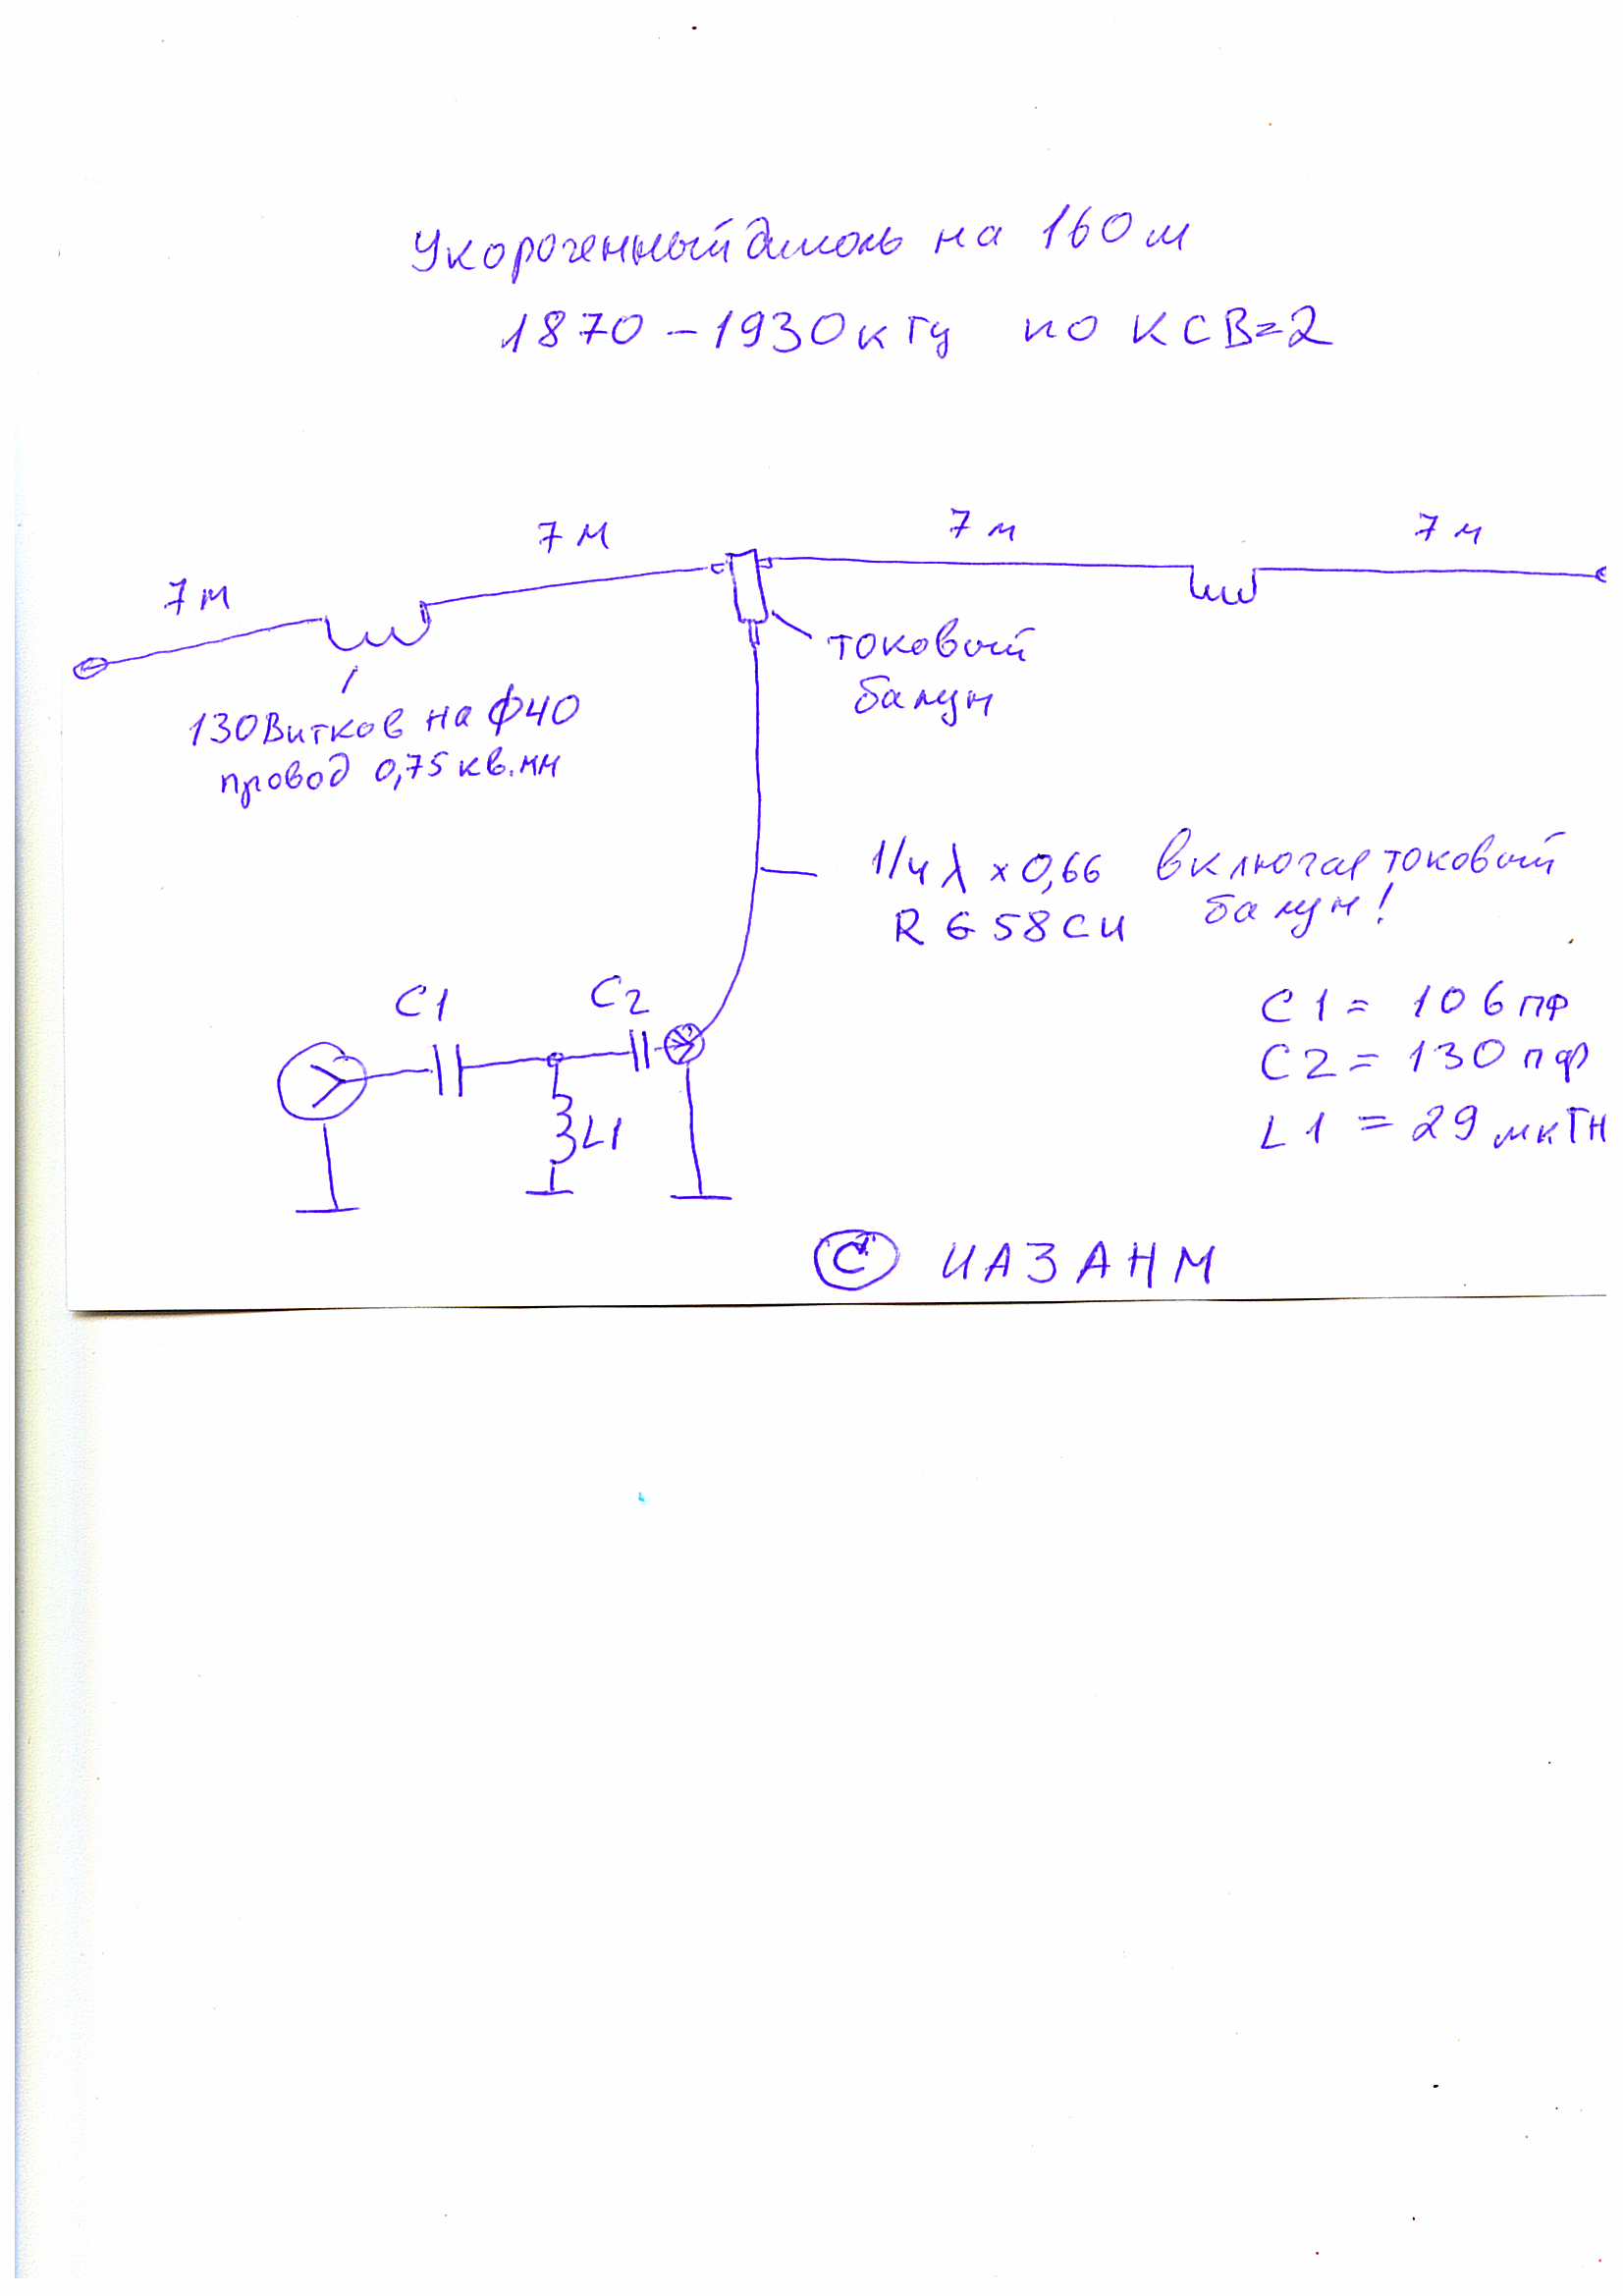 Укороченный диполь на 160м
1870 – 1930 кГц по КСВ=2
7м
7м
7м
7м
токовый
балун
130 витков на ф40
провод 0,75 кв.мм
1/4 λ × 0,66 включая токовый
балун!
RG58CU
C1
C2
L1
C1 = 106 пФ
C2 = 130 пФ
L1 = 29 мкГн
© UA3AHM